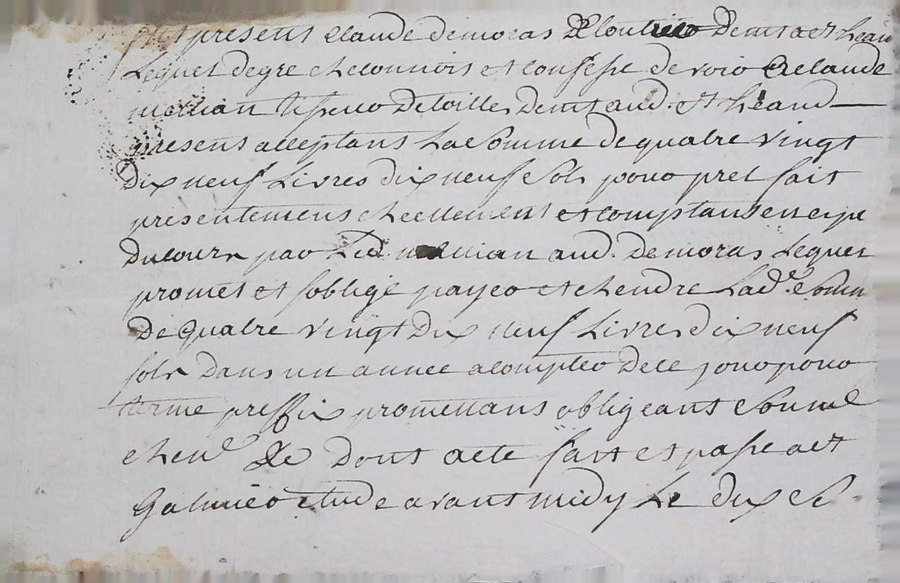 present claude demoras Demt a St heand
Lequel degre a reconnu et confesse devoir a claude
mallian tisseur de toilles Demt aud. St héand
present acceptans La somme de quatre vingt
dix neuf Livres dix neuf sols pour pret fait
presentement reellement et comptans en espe
Ducours par Led. mallian aud. Demoras Lequel
promet et soblige payer et rendre Lade. somm
De quatre vingt dix neuf Livres dix neuf
sols Dans un annee a compter De ce jour pour
terme preffix promettans obligeans soumt
renl &c Dont acte fait et passe a St
Galmier etude avant midy Le dix